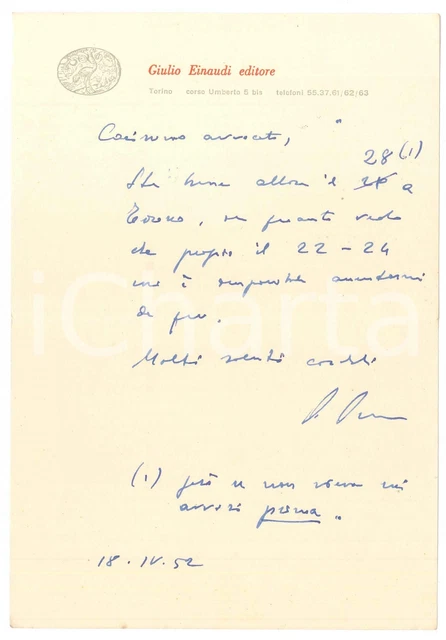 Giulio Einaudi editore
Torino corso Umberto 5 bis telefoni 55.37.61/62/63
Carissimo avvocato,
28 (1)
Sta bene allora il a
Torino, in quanto vedo
che proprio il 22 - 24
mi è impossibile
di qui.
Molti saluti cordiali
(1) però se non viene mi
avvisi prima.
18. IV. 52
iCharta